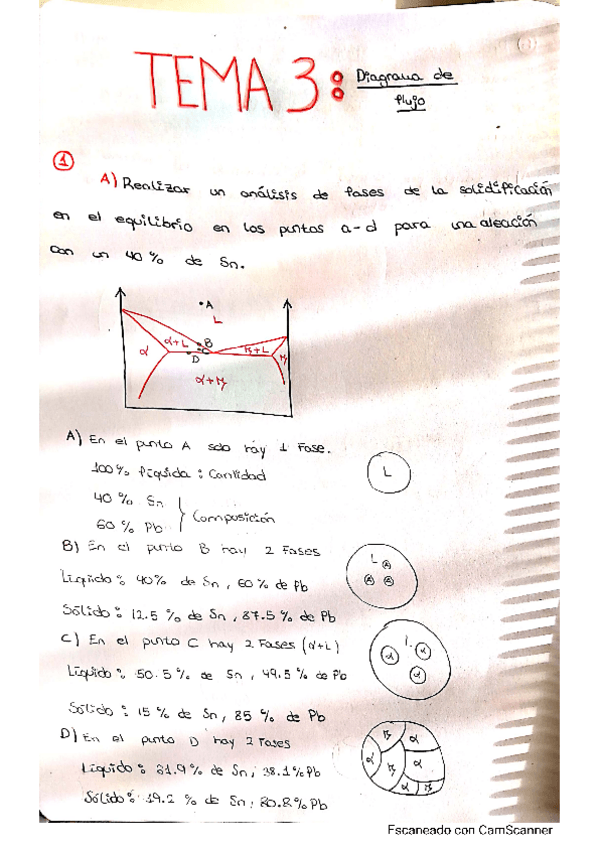 TEMA 3: Diagrama de
flujo
1
A) Realizar un análisis de fases de la solidificación
en el equilibrio en los puntos a-d para una aleación
con un 40% de Sn.
A
L
α+L B
α C β+L β
D
α+β
A) En el punto A solo hay 1 Fase.
100% líquida : Cantidad
L
40 % Sn
60 % Pb } Composición
B) En el punto B hay 2 Fases
L α
α α
Líquido : 40% de Sn, 60% de Pb
Sólido : 12.5 % de Sn, 87.5 % de Pb
C) En el punto C hay 2 Fases (α+L)
L α
α α
Líquido : 50.5% de Sn, 49.5% de Pb
Sólido : 15 % de Sn, 85 % de Pb
D) En el punto D hay 2 Fases
β α
α β α
α β
Líquido : 61.9% de Sn; 38.1% Pb
Sólido : 19.2 % de Sn; 80.8% Pb
Escaneado con CamScanner